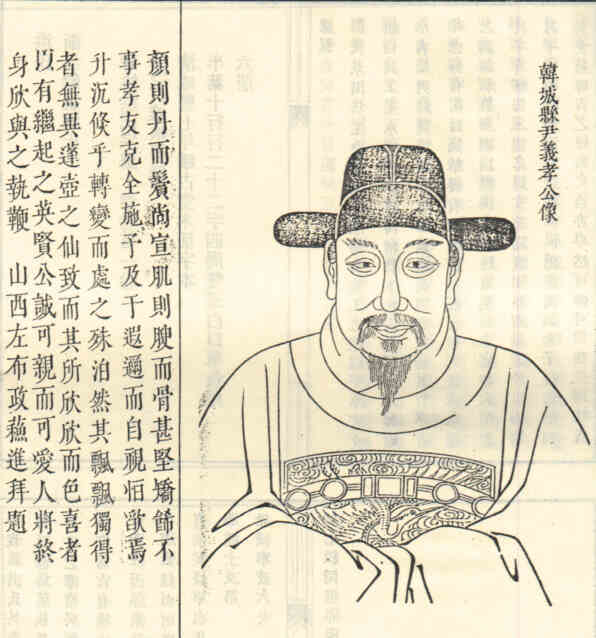 韓城縣尹義孝公像
顏則丹而鬢尚宣肌則腴而骨甚堅矯飾不
事孝友克全施予及于遐邇而自視欿焉
升沉倏乎轉變而處之殊泊然其飄飄獨得
者無異蓬壺之仙致而其所欣欣而色喜者
以有繼起之英賢公誠可親而可愛人將終
身欣與之執鞭　山西左布政蘓進拜題